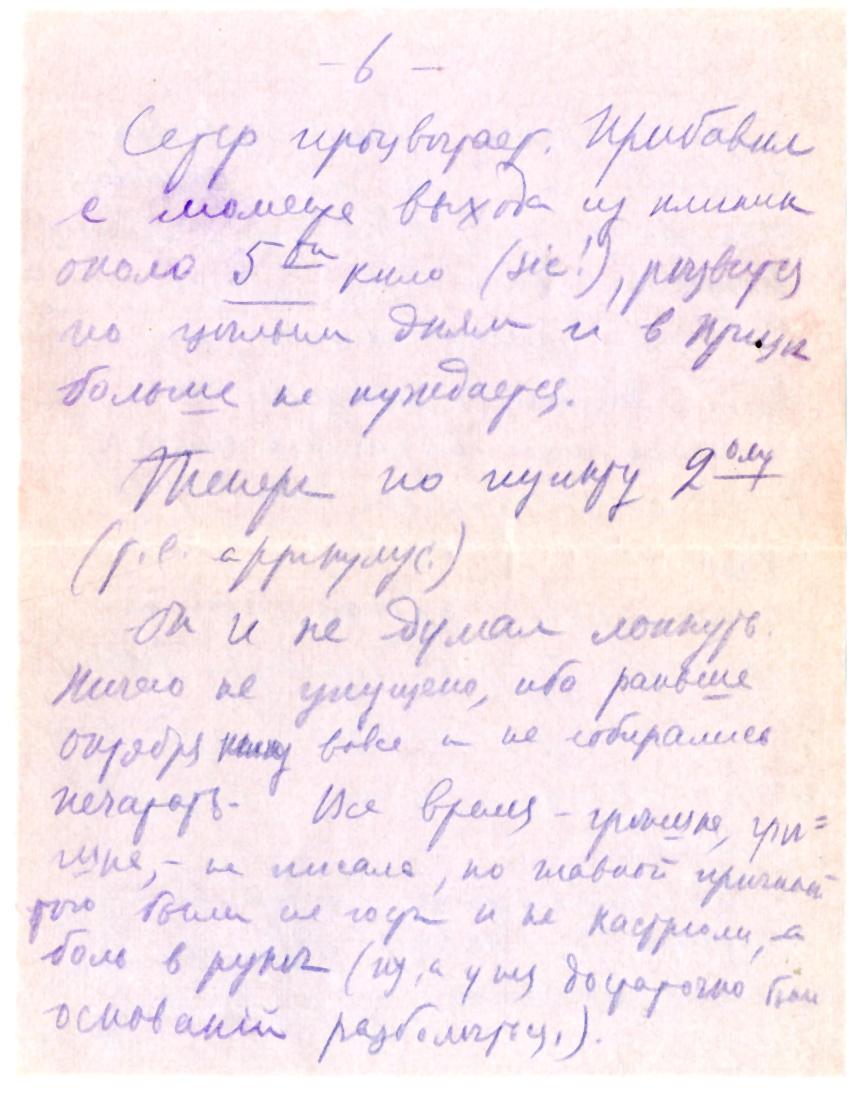 – 6 –
Сетер процветает. Прибавил
с момента выхода из клиник
около 5ти кило (sic!), резвится
по целым дням и в
больше не нуждается.
Теперь по пункту 2ому
(т.е. аррикулус.)
Он и не думал лопнуть.
Ничего не упущено, ибо раньше
октября книгу вовсе и не собирались
печатать. Все время – грешна, гре=
шна, – не писала, но главной причиной
того были не гости и не кастрюли, а
боль в руке (ну, а у нея достаточно было
оснований разболеться,).